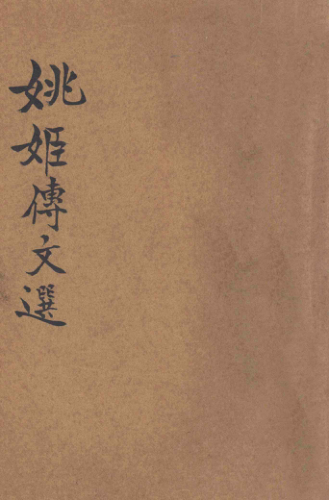 姚姬傳文選